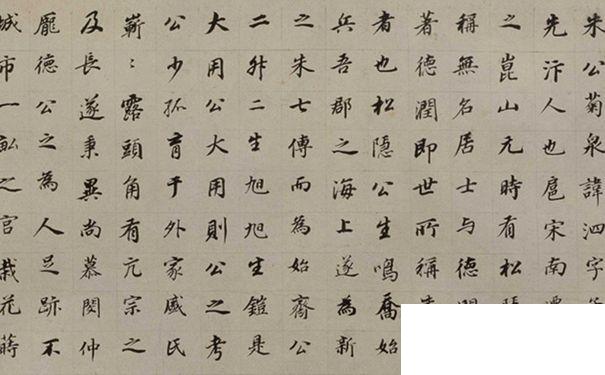 朱公菊泉諱泗字
先汴人也扈宋南
之崑山元時有松
稱無名居士与德
著德潤即世所稱
者也松隱公生鳴喬始
兵吾郡之海上遂為新
之朱七傳而為始齋公
二外二生旭旭生鎧是
大用公大用則公之考
公少孤育于外家氏
嶄〻露頭角有亢宗之
及長遂秉異尚慕閔仲
龐德公之為人足跡不
城市一畝之宮栽花蒔